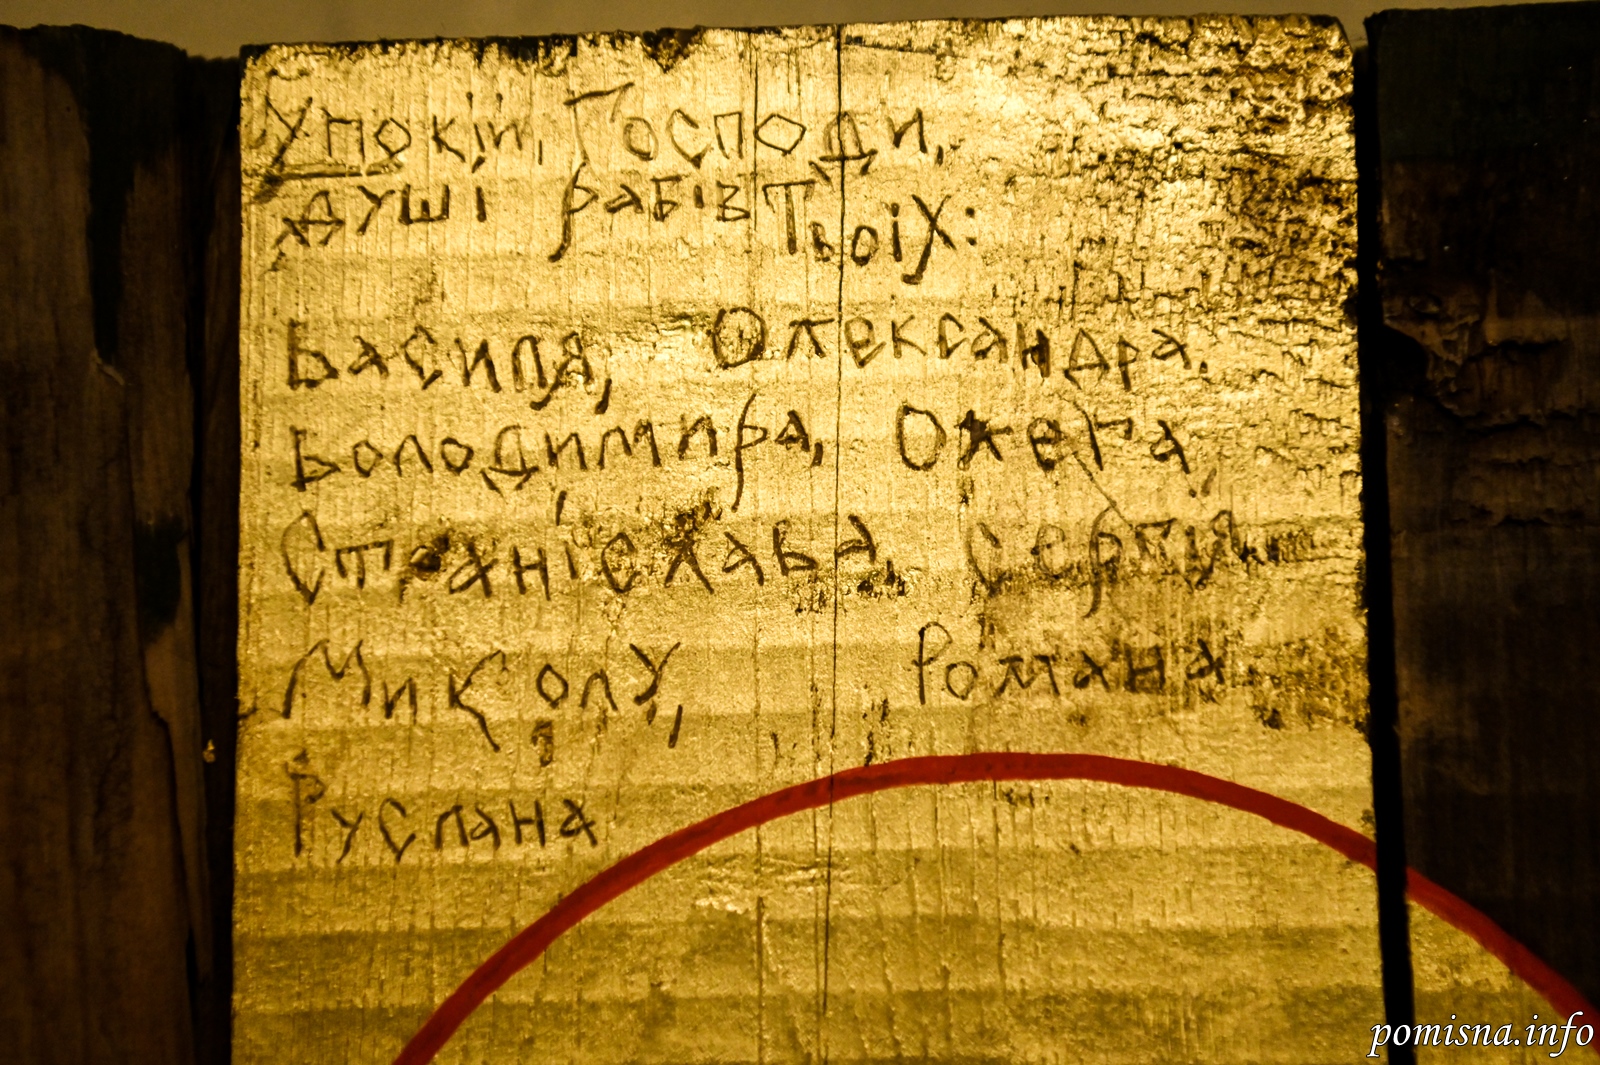 Упокій, Господи,
душі рабів Твоїх:
Василя, Олександра,
Володимира, Олега,
Станіслава, Сергія,
Миколу, Романа
Руслана
pomisna.info